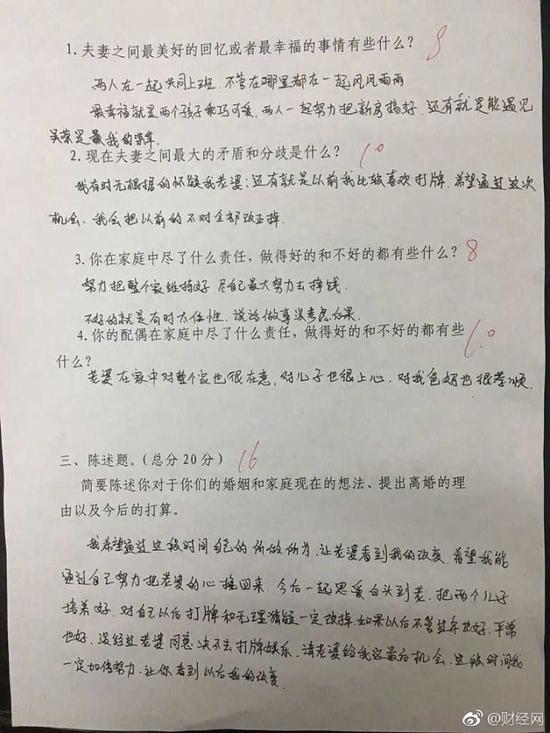 1.夫妻之间最美好的回忆或者最幸福的事情有些什么? 8
两人在一起共同上班.不管在哪里都在一起风风雨雨
最幸福就是两个孩子乖巧可爱,两人一起努力把新房搞好.还有就是能遇见
吴荣是最我的
2.现在夫妻之间最大的矛盾和分歧是什么? 10
我有时无根据的怀疑我老婆;还有就是以前我比较喜欢打牌.希望通过这次
机会.我会把以前的不对全部改正掉.
3.你在家庭中尽了什么责任,做得好的和不好的都有些什么? 8
努力把整个家维持好 尽自己最大努力去挣钱.
不好的就是有时太任性.说话做事没考虑后果.
4.你的配偶在家庭中尽了什么责任,做得好的和不好的都有些 10
什么?
老婆在家中对整个家也很在意,对儿子也很上心.对我爸妈也很孝顺.
三、陈述题。(总分20分) 16
简要陈述你对于你们的婚姻和家庭现在的想法、提出离婚的理
由以及今后的打算。
我希望通过这段时间自己的所做所为.让老婆看到我的改变.希望我能
通过自己努力把老婆的心挽回来.今后一起恩爱白头到老.把两个儿子
培养好.对自己以后打牌和无理猜疑一定改掉.如果以后不管过年也好.平常
也好.没经过老婆同意决不去打牌娱乐.请老婆给我这最后机会.这段时间我
一定加倍努力.让你看到以后我的改变.
@财经网